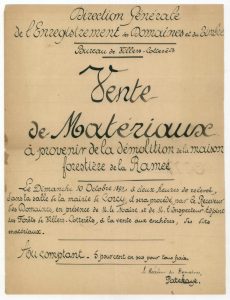 Direction Générale
de l'Enregistrement des Domaines et du Timbre
Bureau de Villers-Cotterêts
Vente
de Matériaux
à provenir de la démolition de la maison
forestière de la Ramée
Le Dimanche 10 Octobre à deux heures de relevé,
dans la salle de la mairie de Corcy, il sera procédé par le Receveur
des Domaines, en présence de M. le Maire et de M. l'Inspecteur adjoint
des Forêts de Villers-Cotterêts, à la vente aux enchères, des dits
matériaux.
Au comptant. - 5 pour cent en sus pour tous frais.
Le Receveur des Domaines,